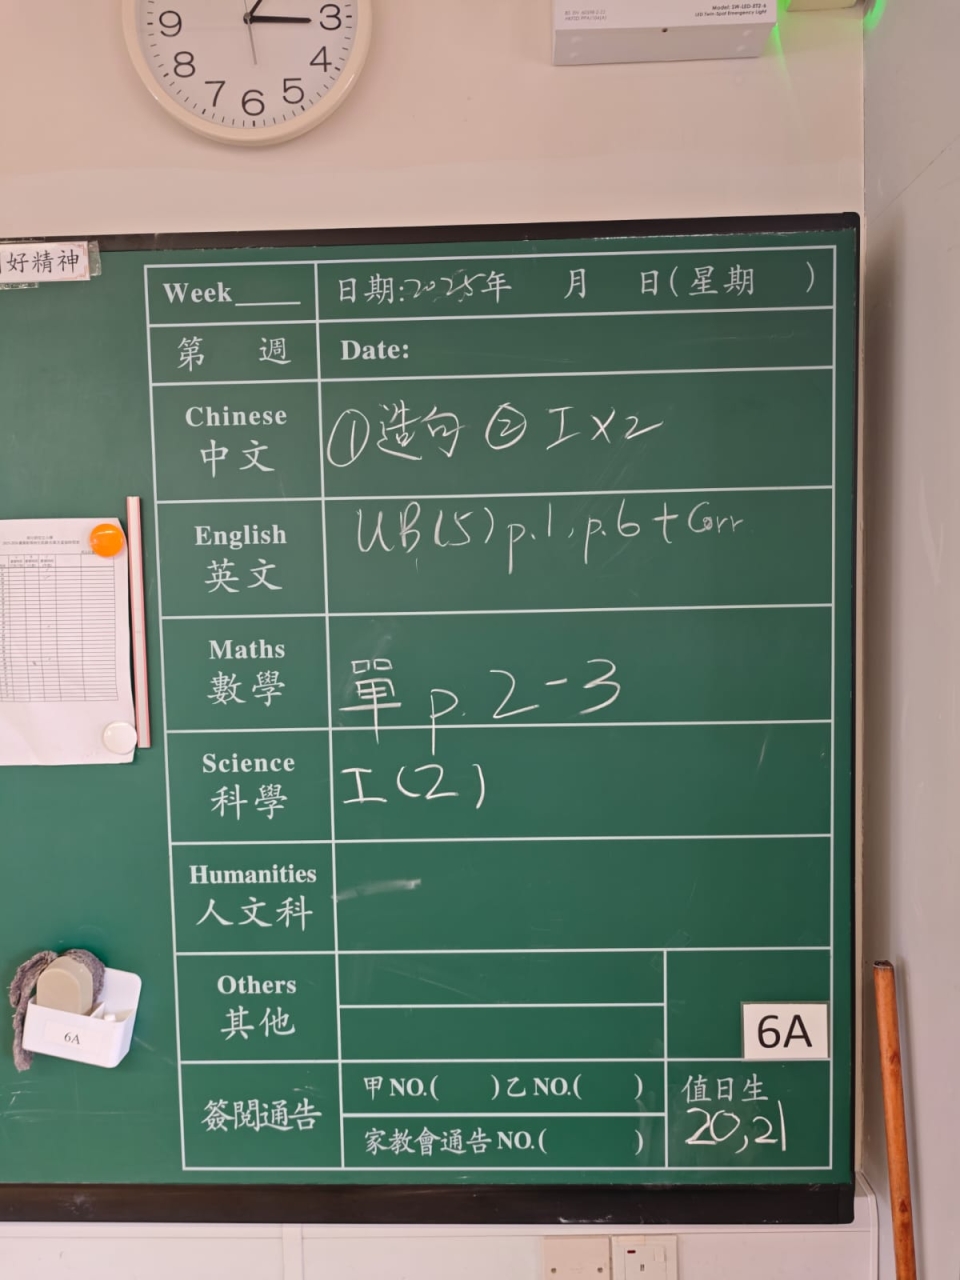 9 3
8 4
7 6 5
Model: SW-LED-2T2-6
LED Twin-Spot Emergency Light
好精神
Week____ 日期:2025年 月 日(星期 )
第 週 Date:
Chinese
中文
①造句 ② I×2
English
英文
UB(5) p.1, p.6 + Corr
Maths
數學
單 p. 2-3
Science
科學
工(2)
Humanities
人文科
Others
其他
6A
6A
簽閱通告
甲NO.( )乙NO.( )
家教會通告NO.( )
值日生
20,21